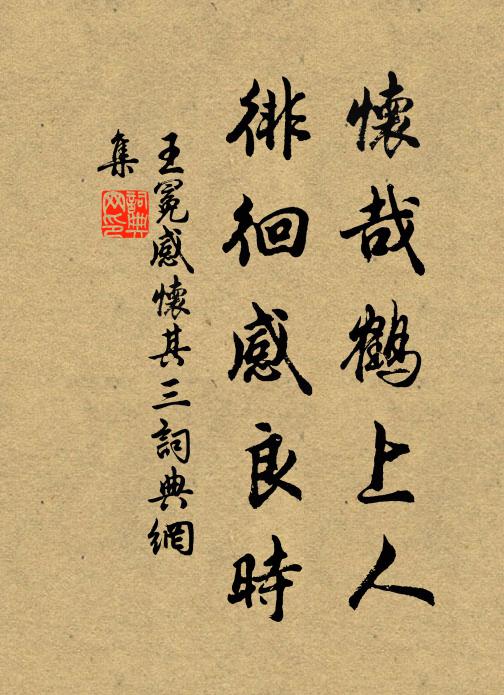 懷哉鶴上人
徘徊感良時
王冕感懷其三詞典網
集
詞典
网印